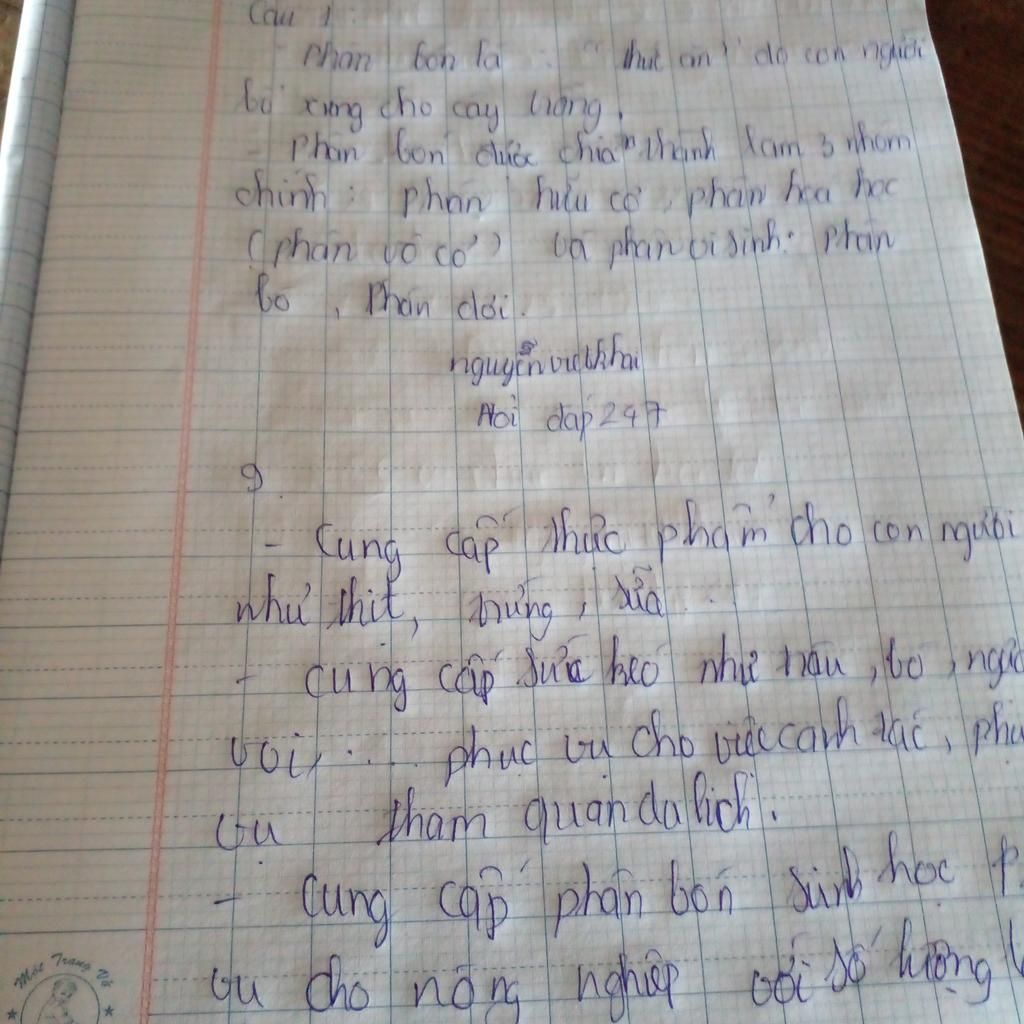 Câu 1:
- Phân bón là : "thức ăn" do con người
bổ xung cho cây trồng.
- Phân bón được chia thành lam 3 nhóm
chính : phân hữu cơ, phân hóa học
(phân vô cơ) và phân vi sinh. phân
bò, Phân dơi.
nguyễn việt khải
Hỏi đáp 247
9.
- Cung cấp thực phẩm cho con người
như thịt, trứng, sữa..
- cung cấp sức kéo như trâu, bò, ngự
voi,.... phục vụ cho việc canh tác, phụ
vụ tham quan da lịch.
- Cung cấp phân bón sinh học p
vụ cho nông nghiệp với số lượng l
Móc Trang Vở